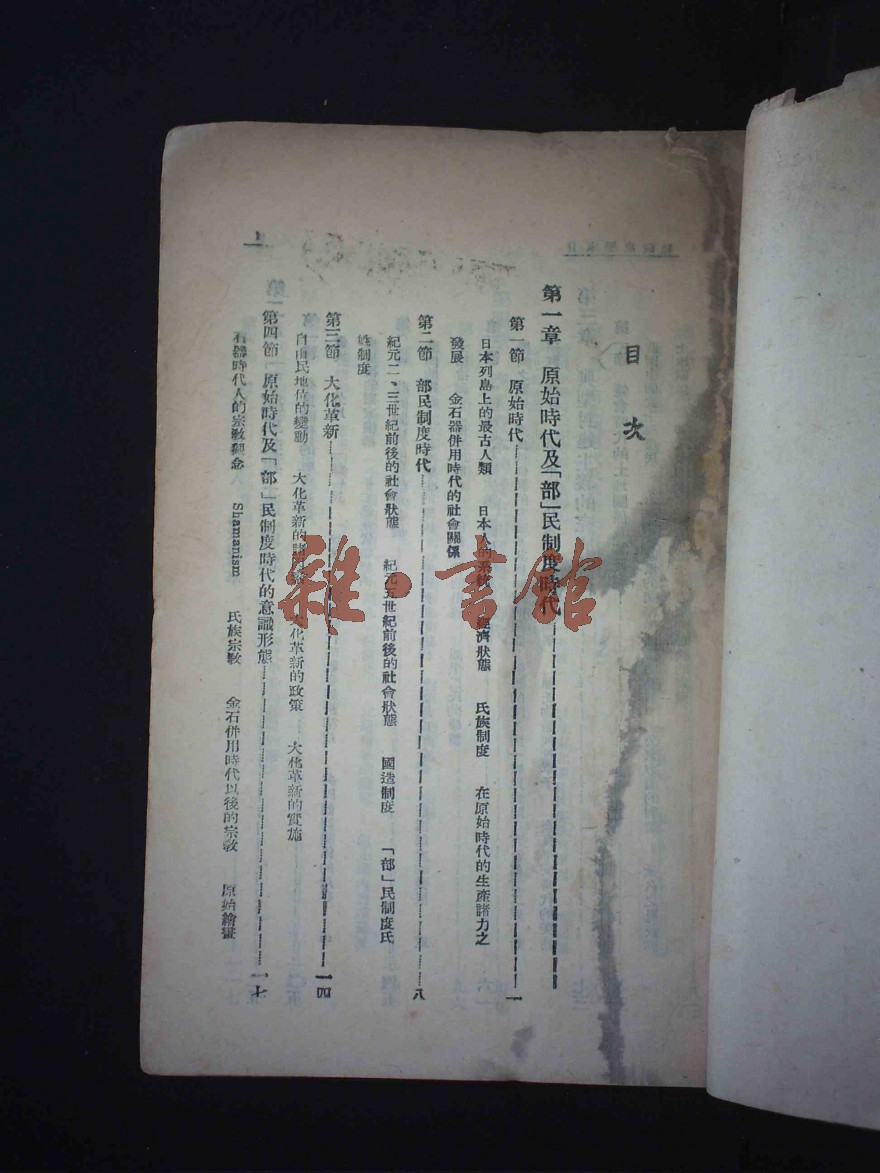 目次
第一章 原始時代及「部」民制度時代
第一節 原始時代 一
日本列島上的最古人類 日本人的系統 經濟狀態 氏族制度 在原始時代的生產諸力之
發展 金石器併用時代的社會關係
第二節 部民制度時代 八
紀元二、三世紀前後的社會狀態 紀元五世紀前後的社會狀態 國造制度 「部」民制度氏
姓制度
第三節 大化革新 一四
自由民地位的變動 大化革新的 大化革新的政策 大化革新的實施
第四節 原始時代及「部」民制度時代的意識形態 一七
石器時代人的宗教觀念 Shamanism 氏族宗教 金石併用時代以後的宗教 原始繪畫
雜·書館